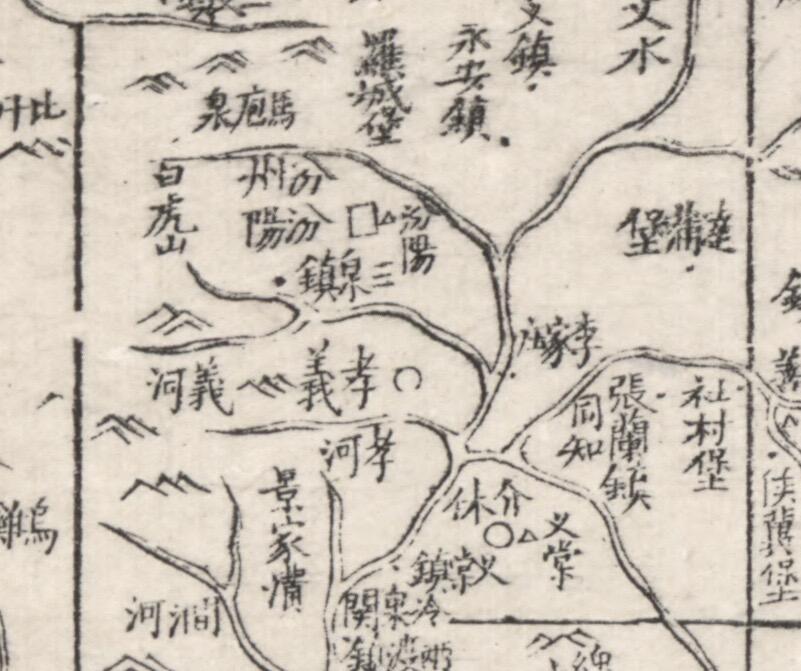 文水
義鎮
永安鎮
羅城堡
馬庖泉
比
白虎山
汾州
汾陽
汾陽
三泉鎮
達蒲堡
李家
義河
孝義
孝河
張蘭鎮
同知
社村堡
侯冀堡
景家溝
介休
義棠
義棠鎮
澗河
冷泉關
鎮
綿